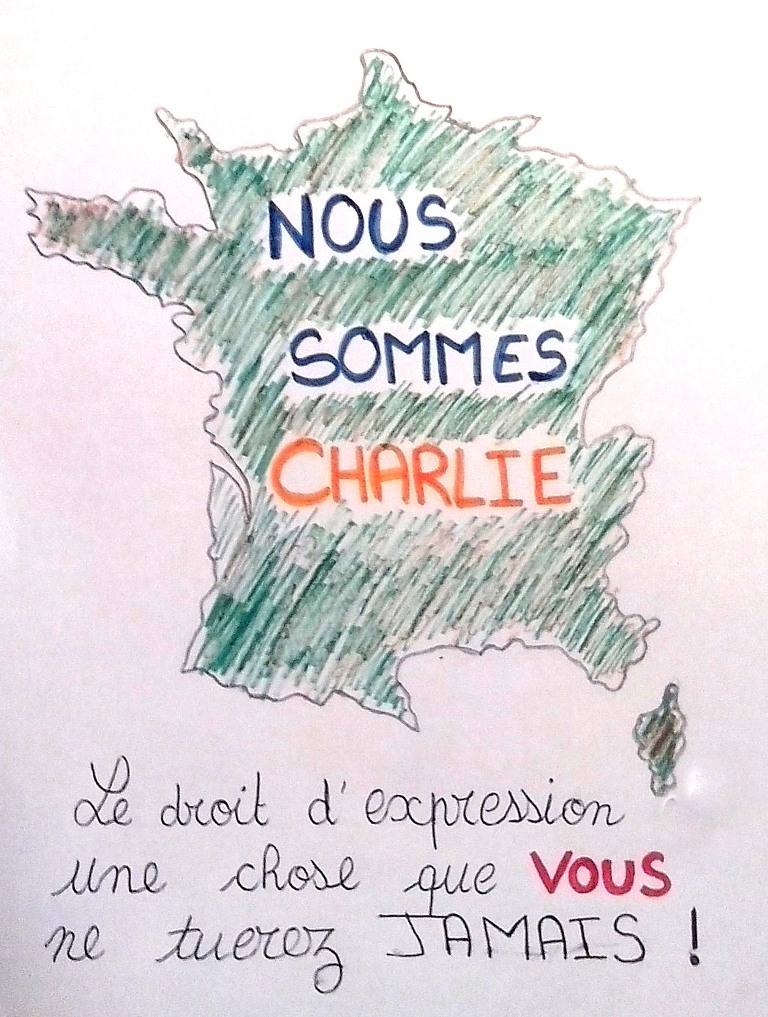 NOUS
SOMMES
CHARLIE
Le droit d'expression
une chose que VOUS
ne tuerez JAMAIS !